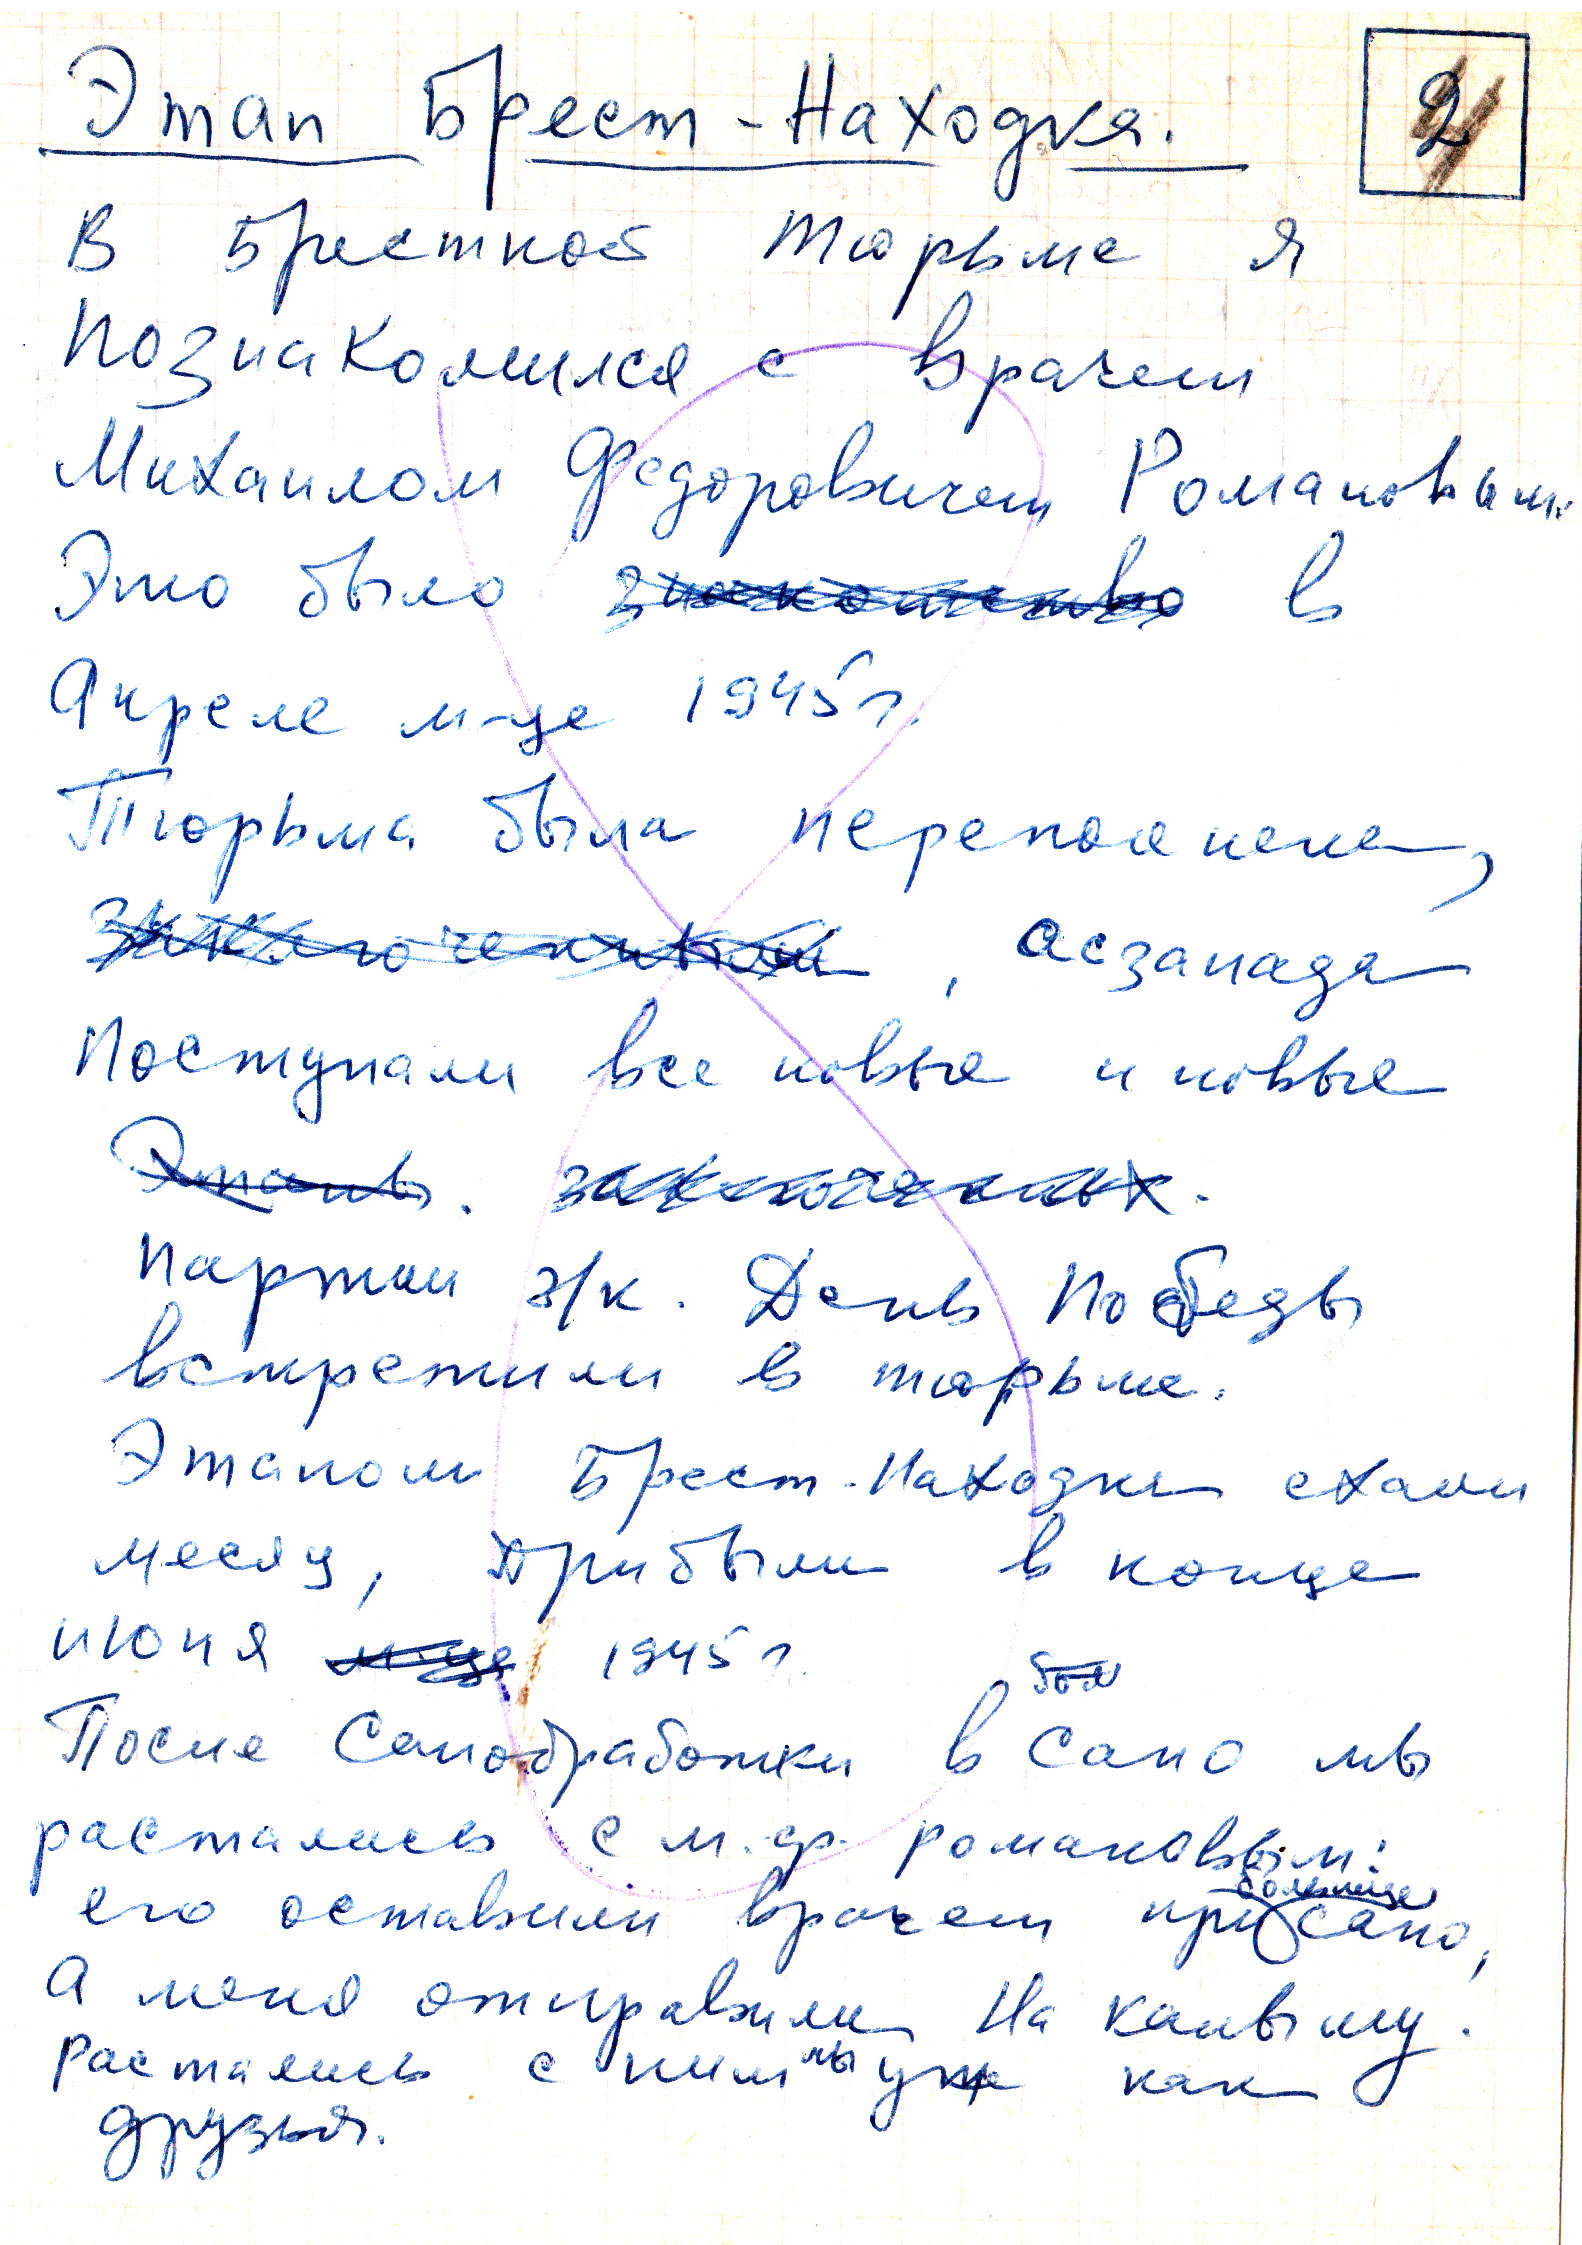 Этап Брест-Находка. 2
В Брестской тюрьме я
Познакомился с врачем
Михаилом Федоровичем Романовым.
Это было знакомство в
Апреле м-це 1945 г.
Тюрьма была переполнена,
заключенными, а с запада
Поступали все новые и новые
Этапы. заключенных.
Партии з/к. День Победы
встретили в тюрьме.
Этапом Брест-Находка ехали
месяц, прибыли в конце
июня м-це 1945 г.
После Санобработки в Сано мы
растались с м.ф. романовым:
больнице
его оставили врачем при сано,
А меня отправили На калыму.
растались с ним мы уже как
друзья.